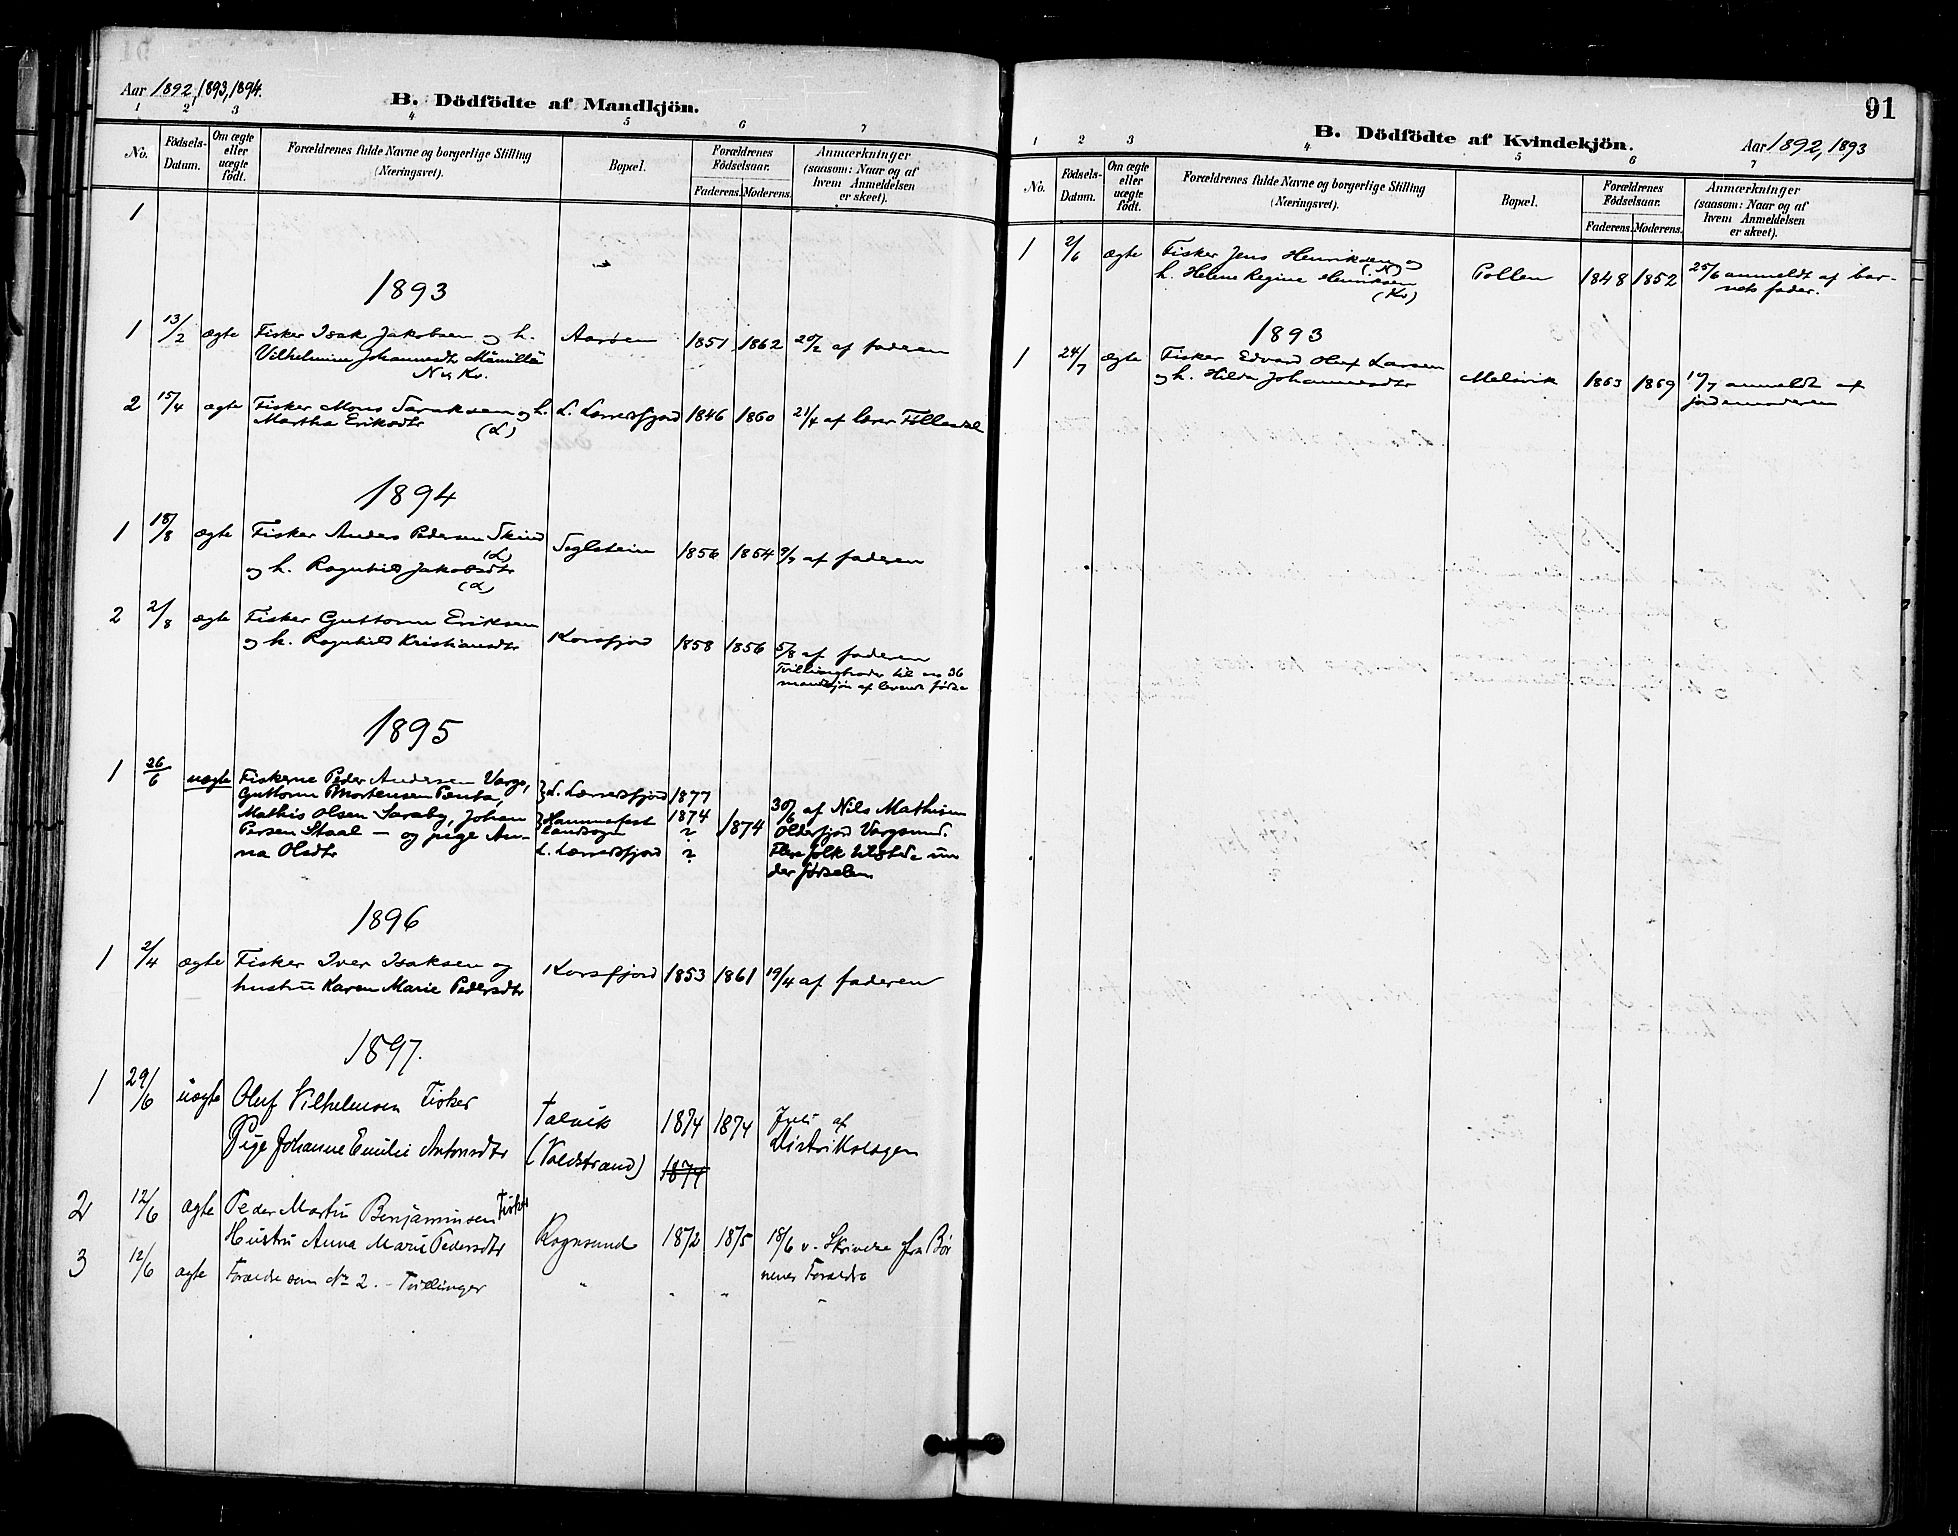 Aar 1892, 1893, 1894.
B. Dödfödte af Mandkjön.
1 2 3 4 5 6 7
No.
Fødsels-Datum.
Om ægte eller uægte født.
Forældrenes fulde Navne og borgerlige Stilling (Næringsvei).
Bopæl.
Forældrenes Fødselsaar.
Faderens. Moderens.
Anmærkninger (saasom: Naar og af hvem Anmeldelsen er skeet).
1
1893
1 13/2 ægte Fisker Isak Jakobsen og h. Aarøen 1851 1862 20/2 af faderen
Vilhelmine Johannesdtr
N og Kv.
2 15/4 ægte Fisker Mons Saraksen og h. L. Lerredsfjord 1846 1860 21/4 af lærer Føllesdal
Martha Eriksdtr (L)
1894
1 18/8 ægte Fisker Anders Pedersen Skind (L) Seglstein 1856 1864 9/9 af faderen
og h. Ragnhild Jakobsdtr
(L)
2 2/8 ægte Fisker Guttorm Eriksen
og h. Ragnhild Kristiansdtr Korsfjord 1858 1856 5/8 af faderen
Tvillingbroder til no 36
mandkjøn af levende fødte
1895
1 26/6 uægte Fiskerne Peder Andersen Varge, } L. Lerredsfjord 1877
Guttorm Mortensen Penta, 1874
Mathis Olsen Saraby, Johan } Hammerfest landsogn ? 1874 30/6 af Nils Mathisen
Persen Staal — og pige An- L. Lerredsfjord ? Olderfjord Vargsund.
na Olsdtr Flere folk tilstede un
der fødselen
1896
1 2/4 ægte Fisker Iver Isaksen og Korsfjord 1853 1861 19/4 af faderen
hustru Karen Marie Pedersdtr
1897.
1 29/6 uægte Oluf Vilhelmsen Fisker Talvik 1874 1874 Juli af
Pige Johanne Emilie Antonsdtr (Voldstrand) 1874 Distriktslægen
2 12/6 ægte Peder Martin Benjaminsen Fisker
Hustru Anna Marie Pedersdtr Rognsund 1872 1875 18/6 v. Skrivelse fra Bør
nenes Forældre
3 12/6 ægte Forældre som No 2. - Tvillinger " " " "
91
B. Dödfödte af Kvindekjön.
Aar 1892, 1893
1 2 3 4 5 6 7
No.
Fødsels-Datum.
Om ægte eller uægte født.
Forældrenes fulde Navne og borgerlige Stilling (Næringsvei).
Bopæl.
Forældrenes Fødselsaar.
Faderens. Moderens.
Anmærkninger (saasom: Naar og af hvem Anmeldelsen er skeet).
1 2/6 ægte Fisker Jens Henriksen og (N) Pollen 1848 1852 25/6 anmeldt af bar-
h. Helene Regine Henriksen nets fader.
(Kv)
1893
1 24/7 ægte Fisker Edvard Oluf Larsen
og h. Hilda Johannesdtr Melsvik 1863 1869 anmeldt af
jordemoderen